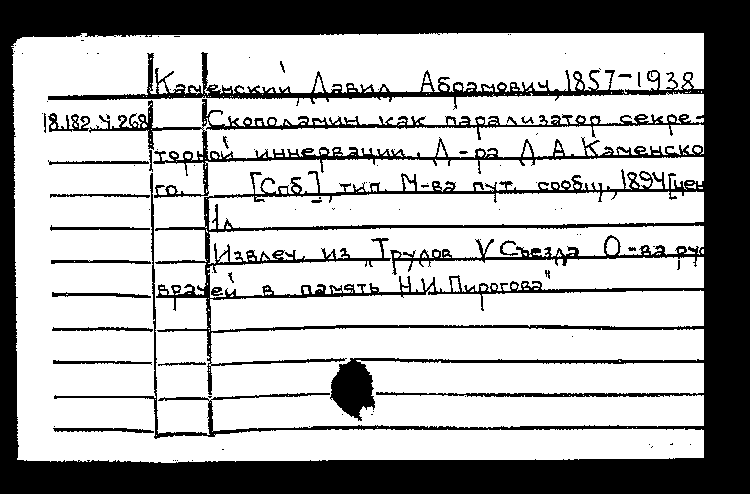 Каменский, Давид Абрамович, 1857-1938
18.182.4.268 Скополамин как парализатор секре-
торной иннервации. Д-ра Д.А. Каменско
го. [Спб.], тип. М-ва пут. сообщ., 1894 [цен
1 л
Извлеч. из "Трудов V Съезда О-ва рус
врачей в память Н.И. Пирогова"